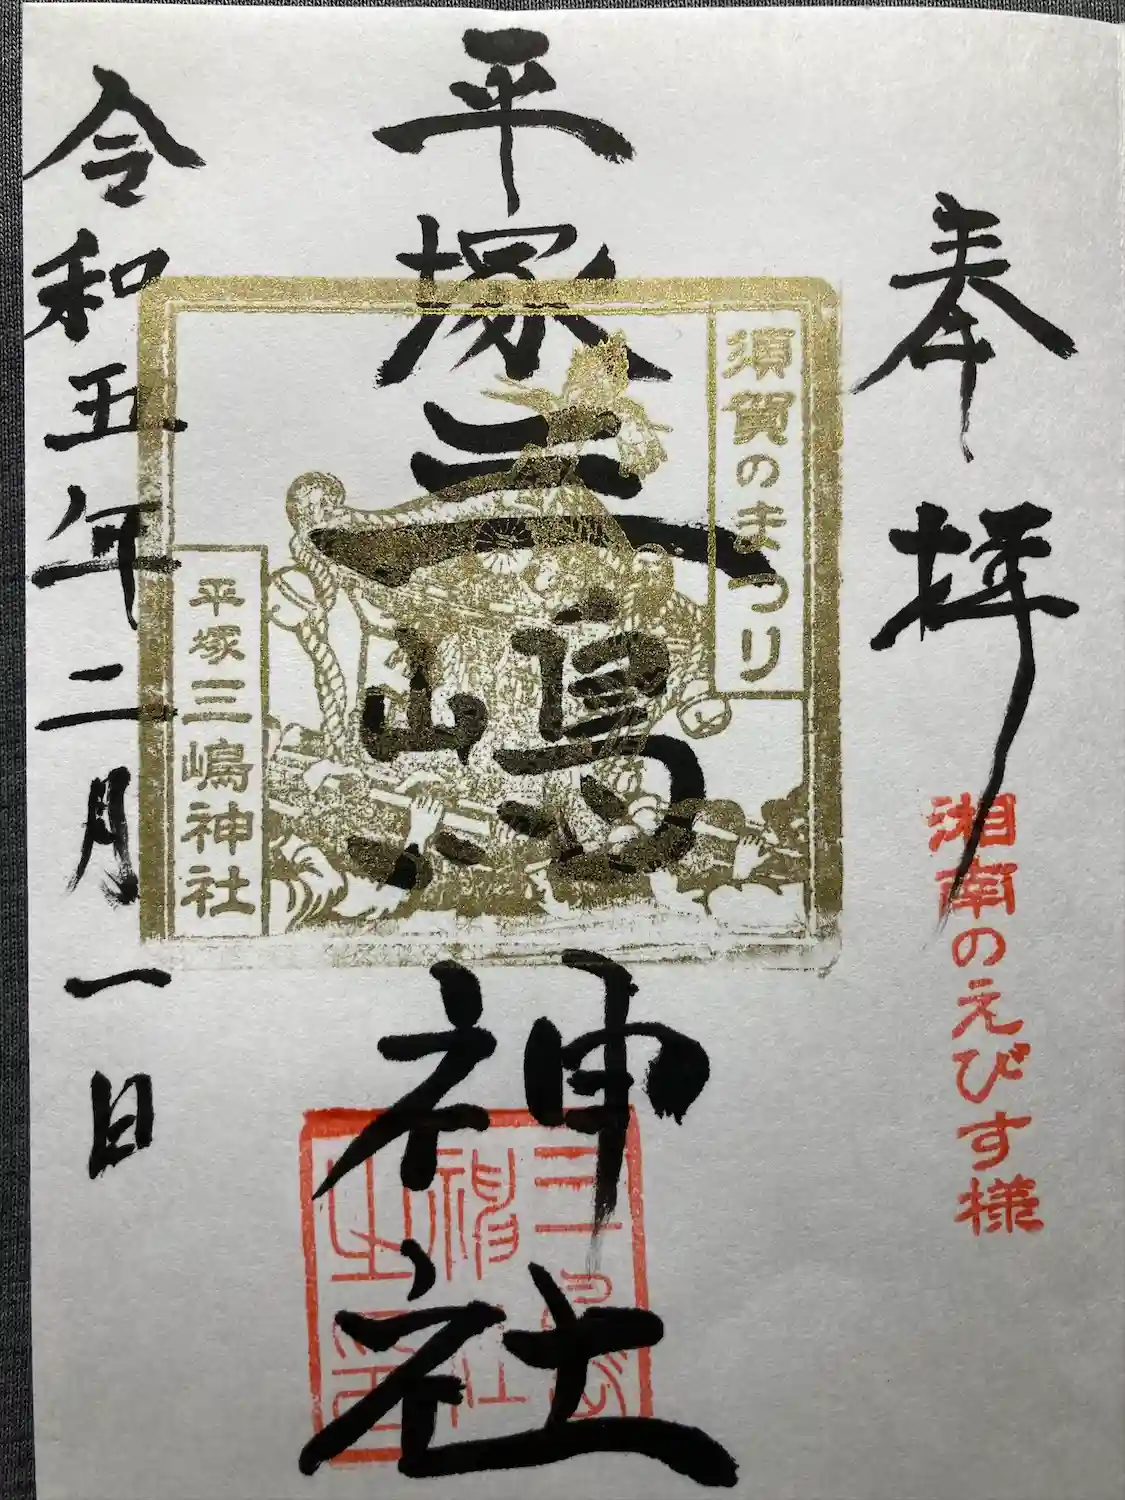 奉拝
湘南のえびす様
平塚三嶋神社
須賀のまつり
平塚三嶋神社
三嶋
神社
之印
令和五年二月一日